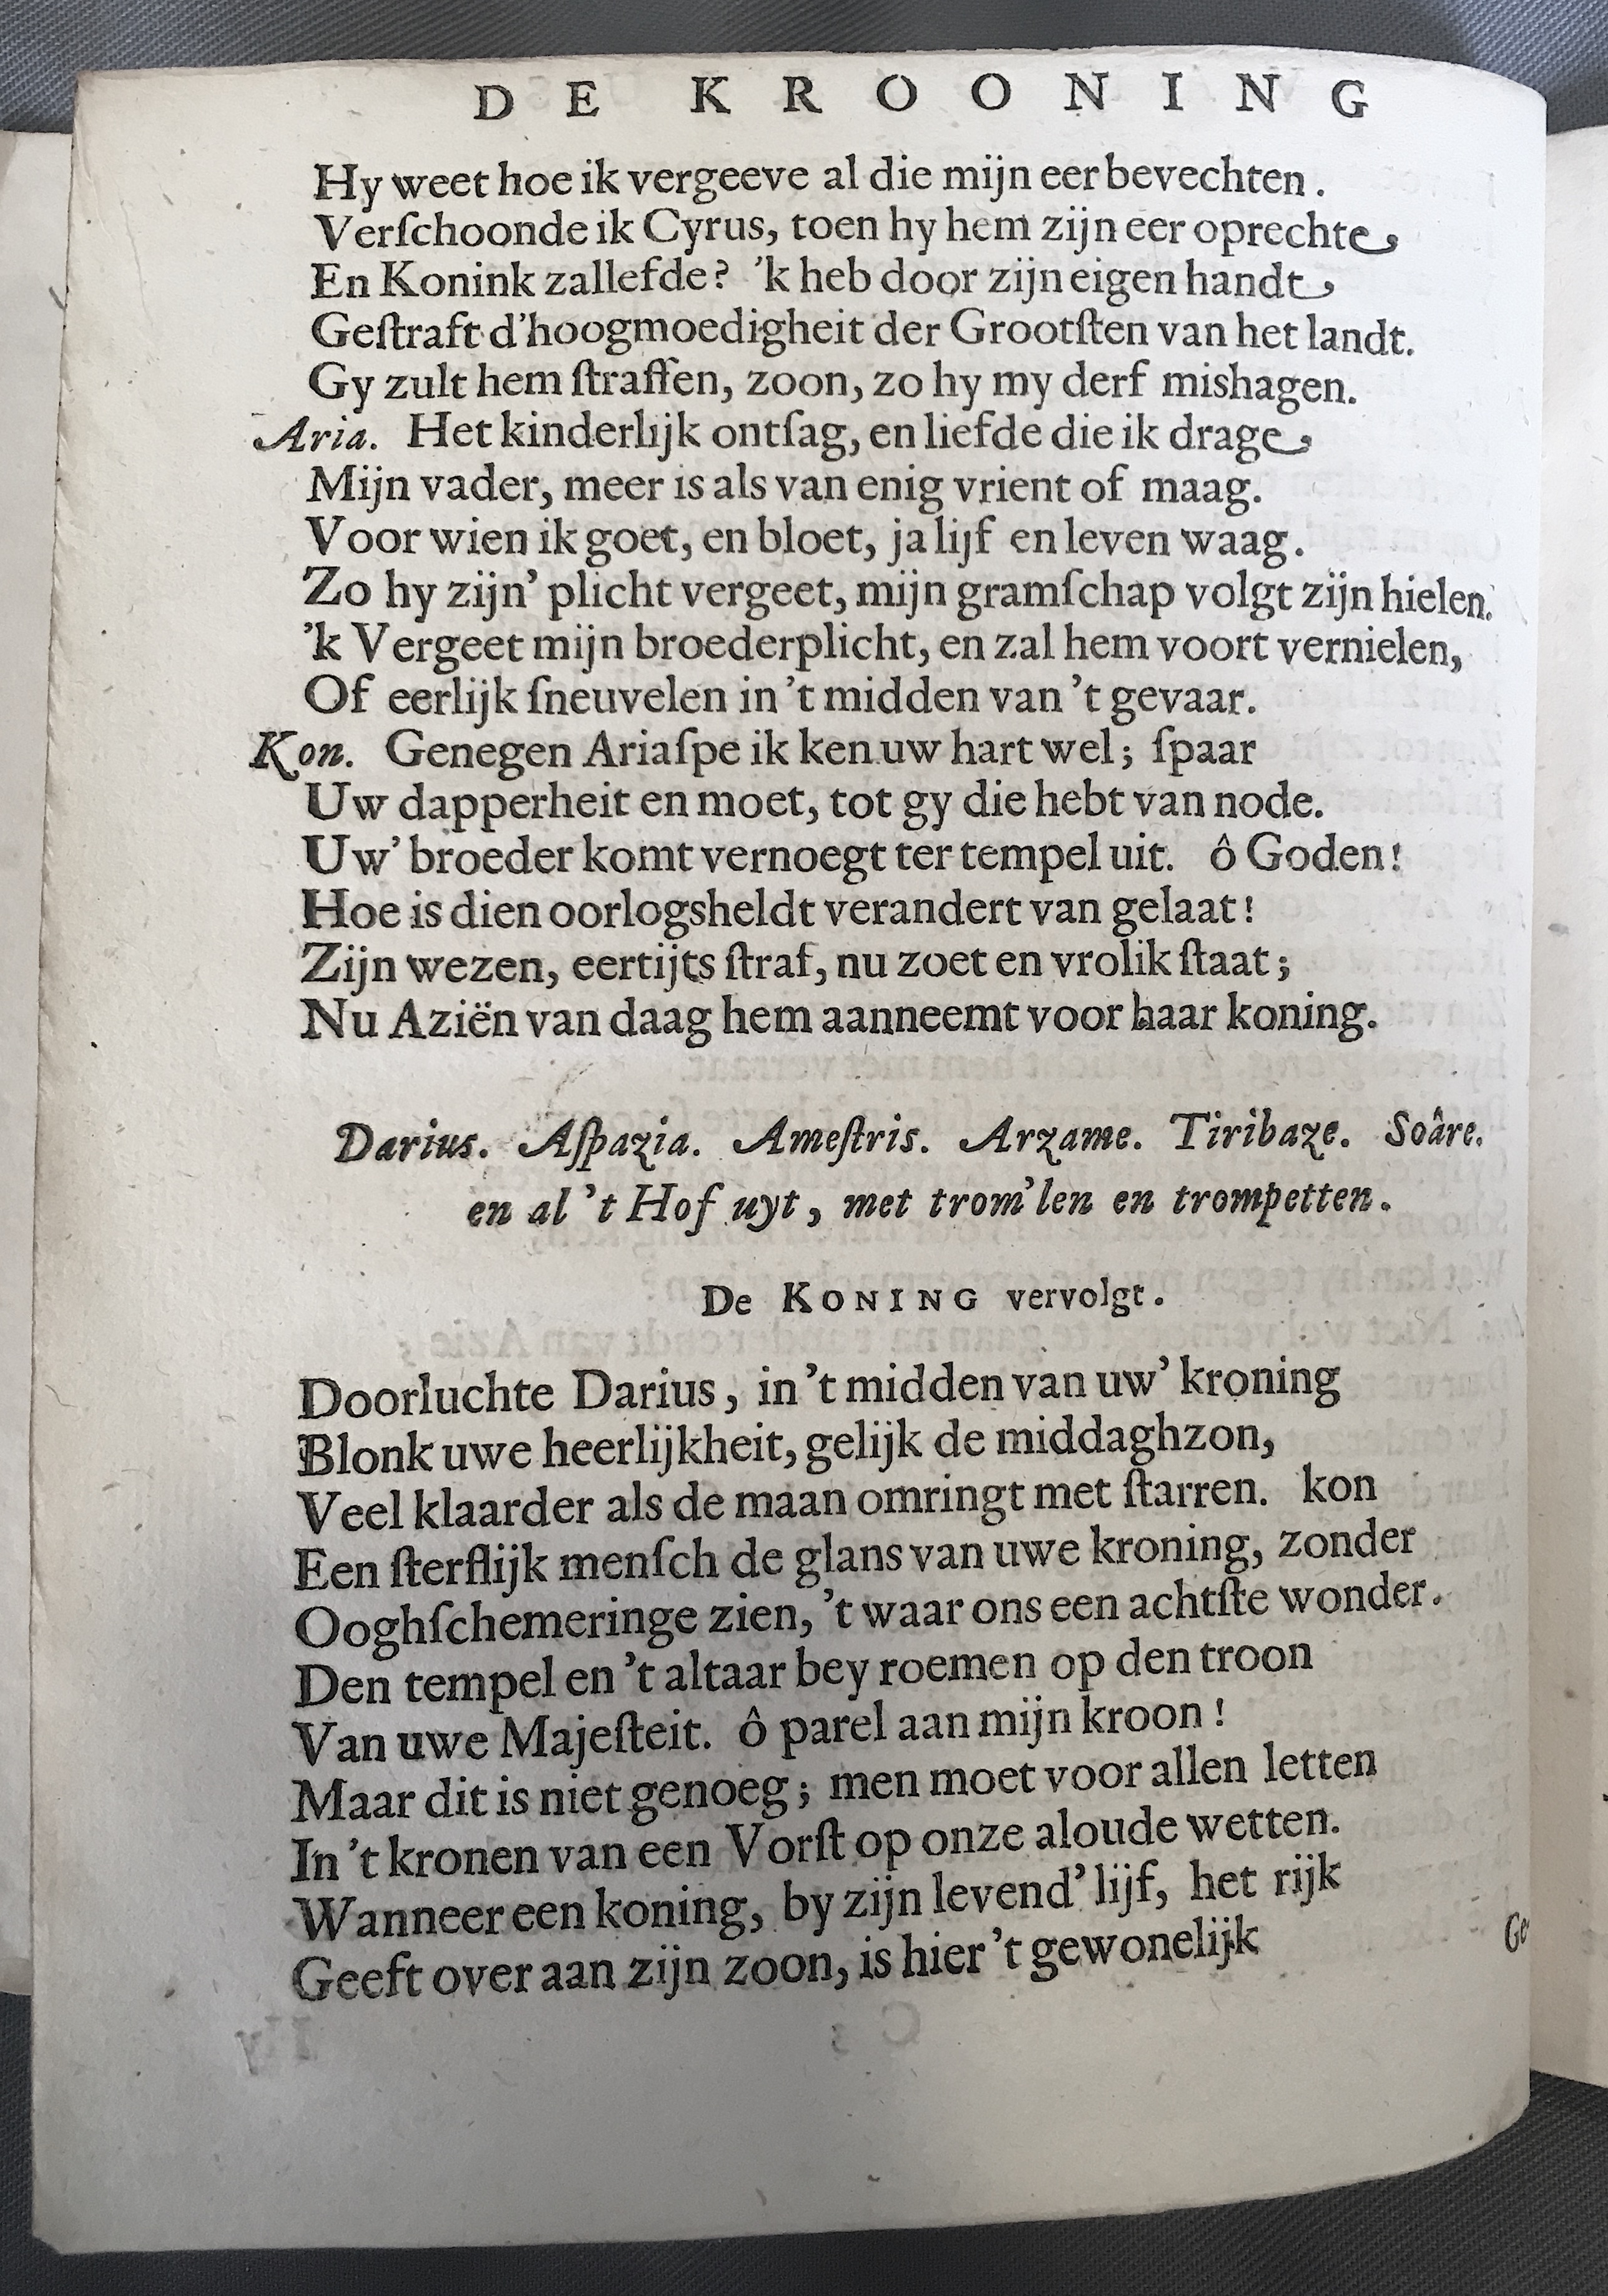 DE KROONING
Hy weet hoe ik vergeeve al die mijn eer bevechten.
Verſchoonde ik Cyrus, toen hy hem zijn eer oprechte
En Konink zallefde? 'k heb door zijn eigen handt
Geſtraft d'hoogmoedigheit der Grootſten van het landt.
Gy zult hem ſtraffen, zoon, zo hy my derf mishagen.
Aria. Het kinderlijk ontſag, en liefde die ik drage
Mijn vader, meer is als van enig vrient of maag.
Voor wien ik goet, en bloet, ja lijf en leven waag.
Zo hy zijn' plicht vergeet, mijn gramſchap volgt zijn hielen.
'k Vergeet mijn broederplicht, en zal hem voort vernielen,
Of eerlijk ſneuvelen in 't midden van 't gevaar.
Kon. Genegen Ariaſpe ik ken uw hart wel; ſpaar
Uw dapperheit en moet, tot gy die hebt van node.
Uw' broeder komt vernoegt ter tempel uit. ô Goden!
Hoe is dien oorlogsheldt verandert van gelaat!
Zijn wezen, eertijts ſtraf, nu zoet en vrolik ſtaat;
Nu Aziën van daag hem aanneemt voor haar koning.
Darius. Aſpazia. Ameſtris. Arzame. Tiribaze. Soâre.
en al 't Hof uyt, met trom'len en trompetten.
De KONING vervolgt.
Doorluchte Darius, in 't midden van uw' kroning
Blonk uwe heerlijkheit, gelijk de middaghzon,
Veel klaarder als de maan omringt met ſtarren. kon
Een ſterflijk menſch de glans van uwe kroning, zonder
Ooghſchemeringe zien, 't waar ons een achtſte wonder.
Den tempel en 't altaar bey roemen op den troon
Van uwe Majeſteit. ô parel aan mijn kroon!
Maar dit is niet genoeg; men moet voor allen letten
In 't kronen van een Vorſt op onze aloude wetten.
Wanneer een koning, by zijn levend' lijf, het rijk
Geeft over aan zijn zoon, is hier 't gewonelijk